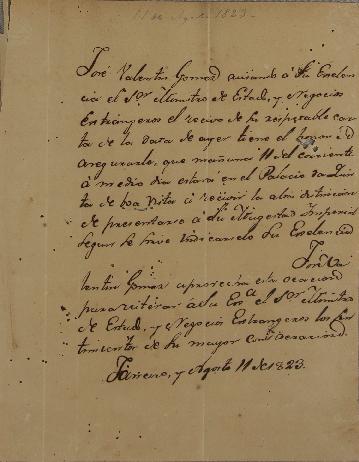 11 de Agosto 1823.
José Valentin Gomez avisando á Su Exelen-
cia el Sor. Ministro de Estado, y Negocios
Extrangeros el recivo de su respetable car-
ta de la data de ayer tiene el honor de
asegurarle, que mañana 11 del corriente
á medio dia estará en el Palacio da Quin-
ta de boa Vista á recivir la alta distincion
de presentarse á Su Magestad Imperial
segun se sirve indicarselo Su Exelencia
José Va-
lentin Gomez aprovecha esta ocacion
para reiterar á Su Exa. el Sor. Ministro
de Estado, y Negocios Extrangeros los sen-
timientos de su mayor consideracion.
Janeiro, y Agosto 11 de 1823.